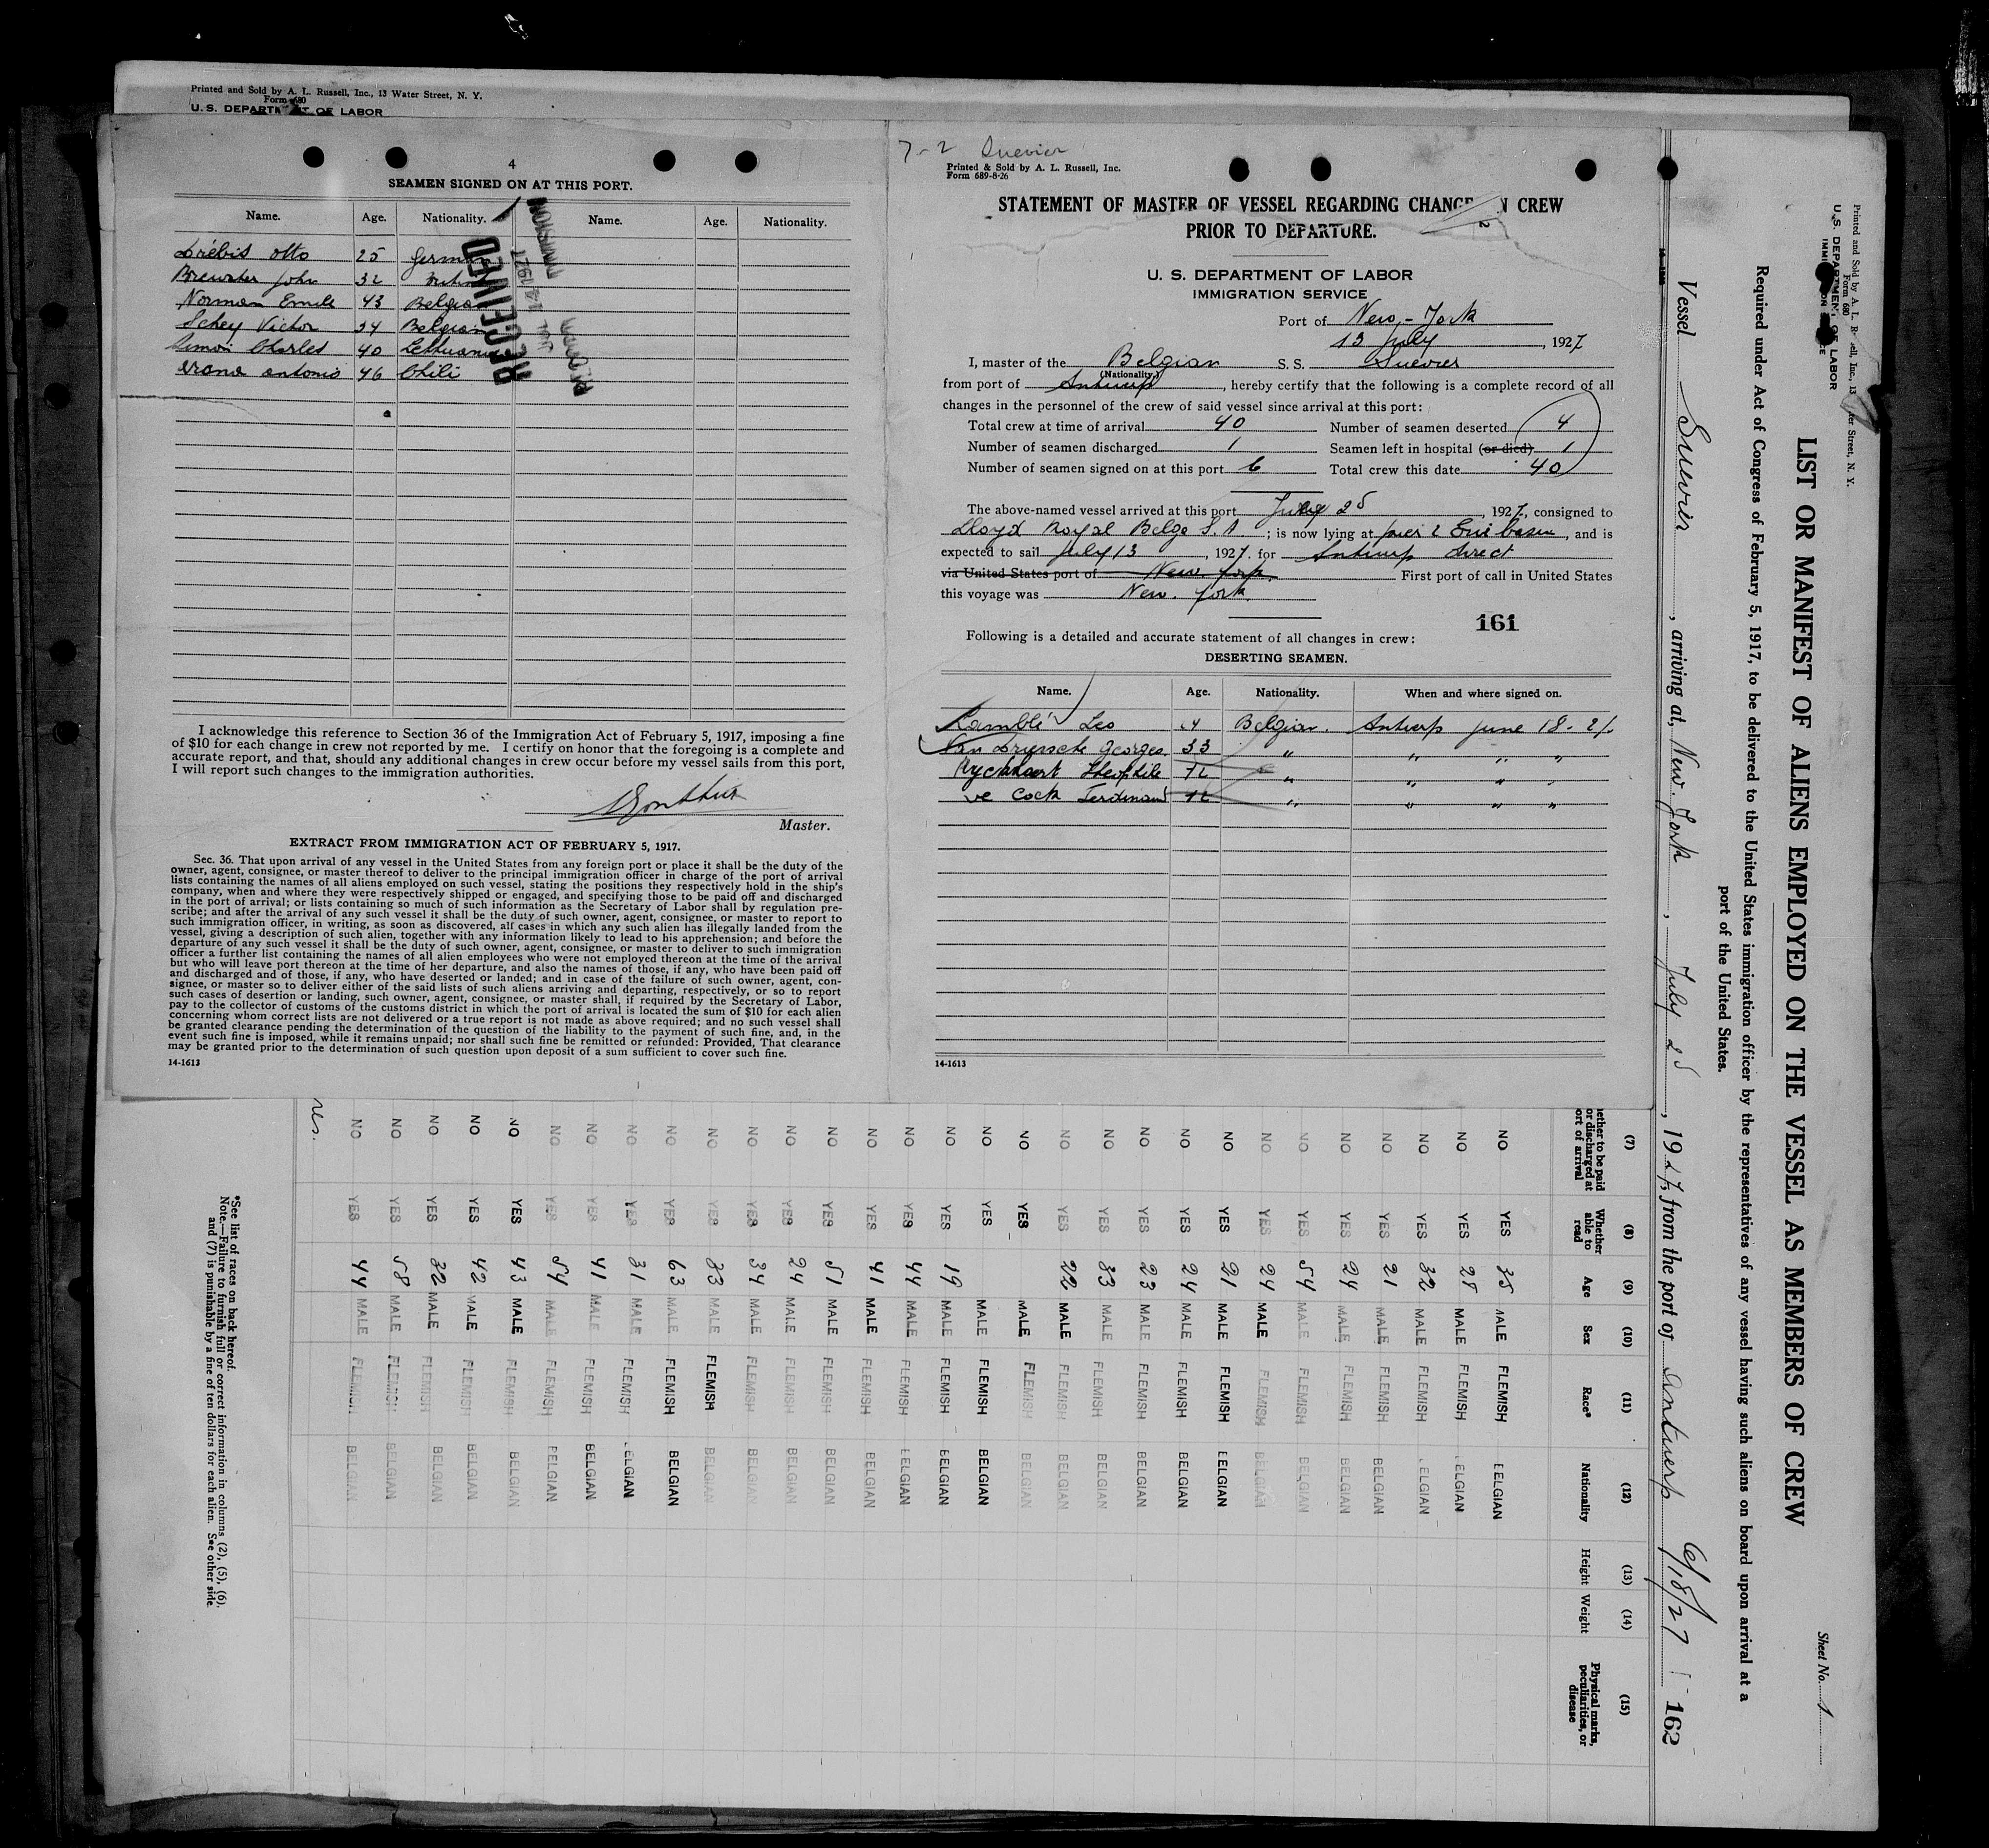 Printed and Sold by A. L. Russell, Inc., 13 Water Street, N. Y.
Form 680
U.S. DEPARTMENT OF LABOR
4
SEAMEN SIGNED ON AT THIS PORT.
Name. Age. Nationality. Name. Age. Nationality.
Otto 25 German
Brewster John 32
Norman Emile 43 Belgian
Schey Victor 34 Belgian
Simon Charles 40
antonio 46 Chili
RECEIVED
I acknowledge this reference to Section 36 of the Immigration Act of February 5, 1917, imposing a fine
of $10 for each change in crew not reported by me. I certify on honor that the foregoing is a complete and
accurate report, and that, should any additional changes in crew occur before my vessel sails from this port,
I will report such changes to the immigration authorities.
Master.
EXTRACT FROM IMMIGRATION ACT OF FEBRUARY 5, 1917.
Sec. 36. That upon arrival of any vessel in the United States from any foreign port or place it shall be the duty of the
owner, agent, consignee, or master thereof to deliver to the principal immigration officer in charge of the port of arrival
lists containing the names of all aliens employed on such vessel, stating the positions they respectively hold in the ship's
company, when and where they were respectively shipped or engaged, and specifying those to be paid off and discharged
in the port of arrival; or lists containing so much of such information as the Secretary of Labor shall by regulation pre-
scribe; and after the arrival of any such vessel it shall be the duty of such owner, agent, consignee, or master to report to
such immigration officer, in writing, as soon as discovered, all cases in which any such alien has illegally landed from the
vessel, giving a description of such alien, together with any information likely to lead to his apprehension; and before the
departure of any such vessel it shall be the duty of such owner, agent, consignee, or master to deliver to such immigration
officer a further list containing the names of all alien employees who were not employed thereon at the time of the arrival
but who will leave port thereon at the time of her departure, and also the names of those, if any, who have been paid off
and discharged and of those, if any, who have deserted or landed; and in case of the failure of such owner, agent, con-
signee, or master so to deliver either of the said lists of such aliens arriving and departing, respectively, or so to report
such cases of desertion or landing, such owner, agent, consignee, or master shall, if required by the Secretary of Labor,
pay to the collector of customs of the customs district in which the port of arrival is located the sum of $10 for each alien
concerning whom correct lists are not delivered or a true report is not made as above required; and no such vessel shall
be granted clearance pending the determination of the question of the liability to the payment of such fine, and, in the
event such fine is imposed, while it remains unpaid; nor shall such fine be remitted or refunded: Provided, That clearance
may be granted prior to the determination of such question upon deposit of a sum sufficient to cover such fine.
14-1613
7-2 Suevier
Printed & Sold by A. L. Russell, Inc.
Form 689-8-26
STATEMENT OF MASTER OF VESSEL REGARDING CHANGE IN CREW
PRIOR TO DEPARTURE.
U. S. DEPARTMENT OF LABOR
IMMIGRATION SERVICE
Port of New-York
13 July, 1927
I, master of the Belgian S. S. Suevier
(Nationality)
from port of Antwerp, hereby certify that the following is a complete record of all
changes in the personnel of the crew of said vessel since arrival at this port:
Total crew at time of arrival 40 Number of seamen deserted 4
Number of seamen discharged 1 Seamen left in hospital (or died) 1
Number of seamen signed on at this port 6 Total crew this date 40
The above-named vessel arrived at this port July 2d, 1927, consigned to
Lloyd Royal Belge S.A.; is now lying at pier 2 Erie basin, and is
expected to sail July 13, 1927. for Antwerp direct
via United States port of New York. First port of call in United States
this voyage was New. York.
161
Following is a detailed and accurate statement of all changes in crew:
DESERTING SEAMEN.
Name. Age. Nationality. When and where signed on.
Lamblé Leo Belgian. Antwerp June 18-27
Van Driessche Georges 33 " " " "
Theophile " " " "
De Cock Ferdinand " " " "
14-1613
Printed and Sold by A. L. Russell, Inc., 13 Water Street, N. Y.
Form 680
U. S. DEPARTMENT OF LABOR
Sheet No. 1
LIST OR MANIFEST OF ALIENS EMPLOYED ON THE VESSEL AS MEMBERS OF CREW
Required under Act of Congress of February 5, 1917, to be delivered to the United States immigration officer by the representatives of any vessel having such aliens on board upon arrival at a
port of the United States.
Vessel Suevier, arriving at New. York, July 2d, 1927, from the port of Antwerp 6/18/27 162
(7) (8) (9) (10) (11) (12) (13) (14) (15)
Whether to be paid or discharged at port of arrival Whether able to read Age Sex Race* Nationality Height Weight Physical marks, peculiarities, or disease
NO YES 35 MALE FLEMISH BELGIAN
NO YES 28 MALE FLEMISH BELGIAN
NO YES 32 MALE FLEMISH BELGIAN
NO YES 21 MALE FLEMISH BELGIAN
NO YES 24 MALE FLEMISH BELGIAN
NO YES 54 MALE FLEMISH BELGIAN
NO YES 24 MALE FLEMISH BELGIAN
NO YES 21 MALE FLEMISH BELGIAN
NO YES 24 MALE FLEMISH BELGIAN
NO YES 23 MALE FLEMISH BELGIAN
NO YES 33 MALE FLEMISH BELGIAN
NO YES 22 MALE FLEMISH BELGIAN
NO YES MALE FLEMISH BELGIAN
NO YES MALE FLEMISH BELGIAN
NO YES 19 MALE FLEMISH BELGIAN
NO YES 44 MALE FLEMISH BELGIAN
NO YES 41 MALE FLEMISH BELGIAN
NO YES 51 MALE FLEMISH BELGIAN
NO YES 24 MALE FLEMISH BELGIAN
NO YES 34 MALE FLEMISH BELGIAN
NO YES 33 MALE FLEMISH BELGIAN
NO YES 63 MALE FLEMISH BELGIAN
NO YES 31 MALE FLEMISH BELGIAN
NO YES 41 MALE FLEMISH BELGIAN
NO YES 54 MALE FLEMISH BELGIAN
NO YES 43 MALE FLEMISH BELGIAN
NO YES 42 MALE FLEMISH BELGIAN
NO YES 32 MALE FLEMISH BELGIAN
NO YES 58 MALE FLEMISH BELGIAN
NO YES 44 MALE FLEMISH BELGIAN
*See list of races on back hereof.
Note.—Failure to furnish full or correct information in columns (2), (5), (6),
and (7) is punishable by a fine of ten dollars for each alien. See other side